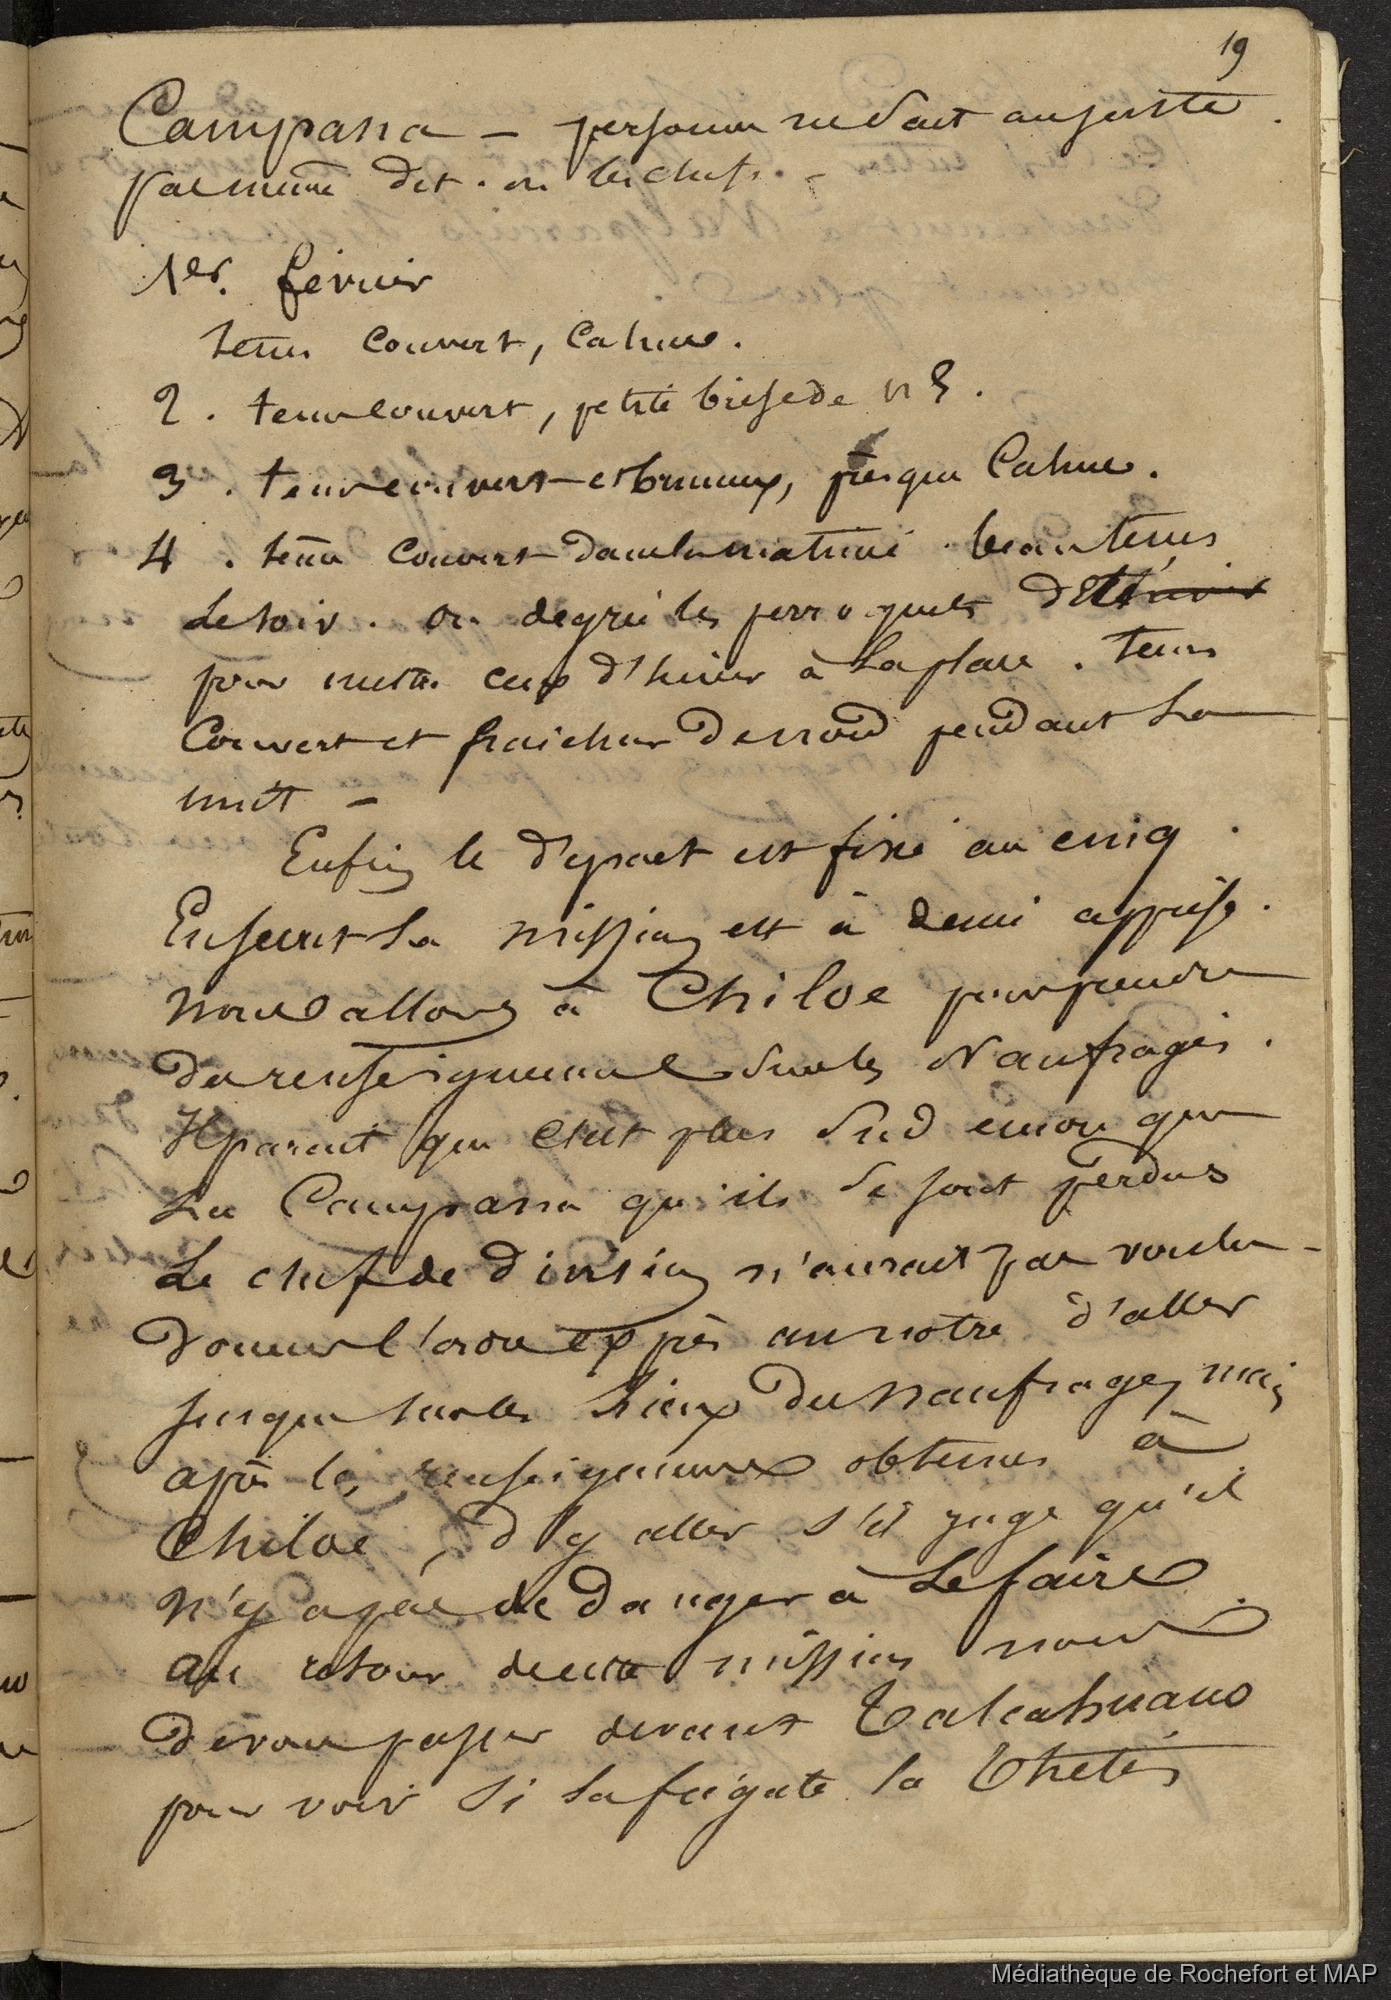 19
Campana — personne ne sait au juste
pas même dit-on les chefs. -
1er. fevrier
tems couvert, calme.
2. tems couvert, petite brise de N E.
3. tems couvert et brumeux, presque calme.
4. tems couvert dans la matinée. beau tems
le soir. on degrée les perroquets
pour mettre ceux d'hiver à la place. tems
couvert et fraicheur de nord pendant la
nuit —
Enfin le départ est fixé au cinq.
Enfin la mission est à demi apprise.
nous allons à Chiloe pour prendre
des renseignemens sur les Naufragés.
Il parait que c'est plus sud encore que
la Campana qu'ils se sont perdus
Le chef de division n'aurait pas voulu
donner l'ordre exprès au notre d'aller
jusque sur les lieux du naufrage, mais
après les renseignemens obtenus à
Chiloe, d'y aller s'il juge qu'il
n'y a pas de danger à le faire.
au retour de cette mission nous
devons passer devant Talcahuano
pour voir si la frégate la Thétis
Médiathèque de Rochefort et MAP